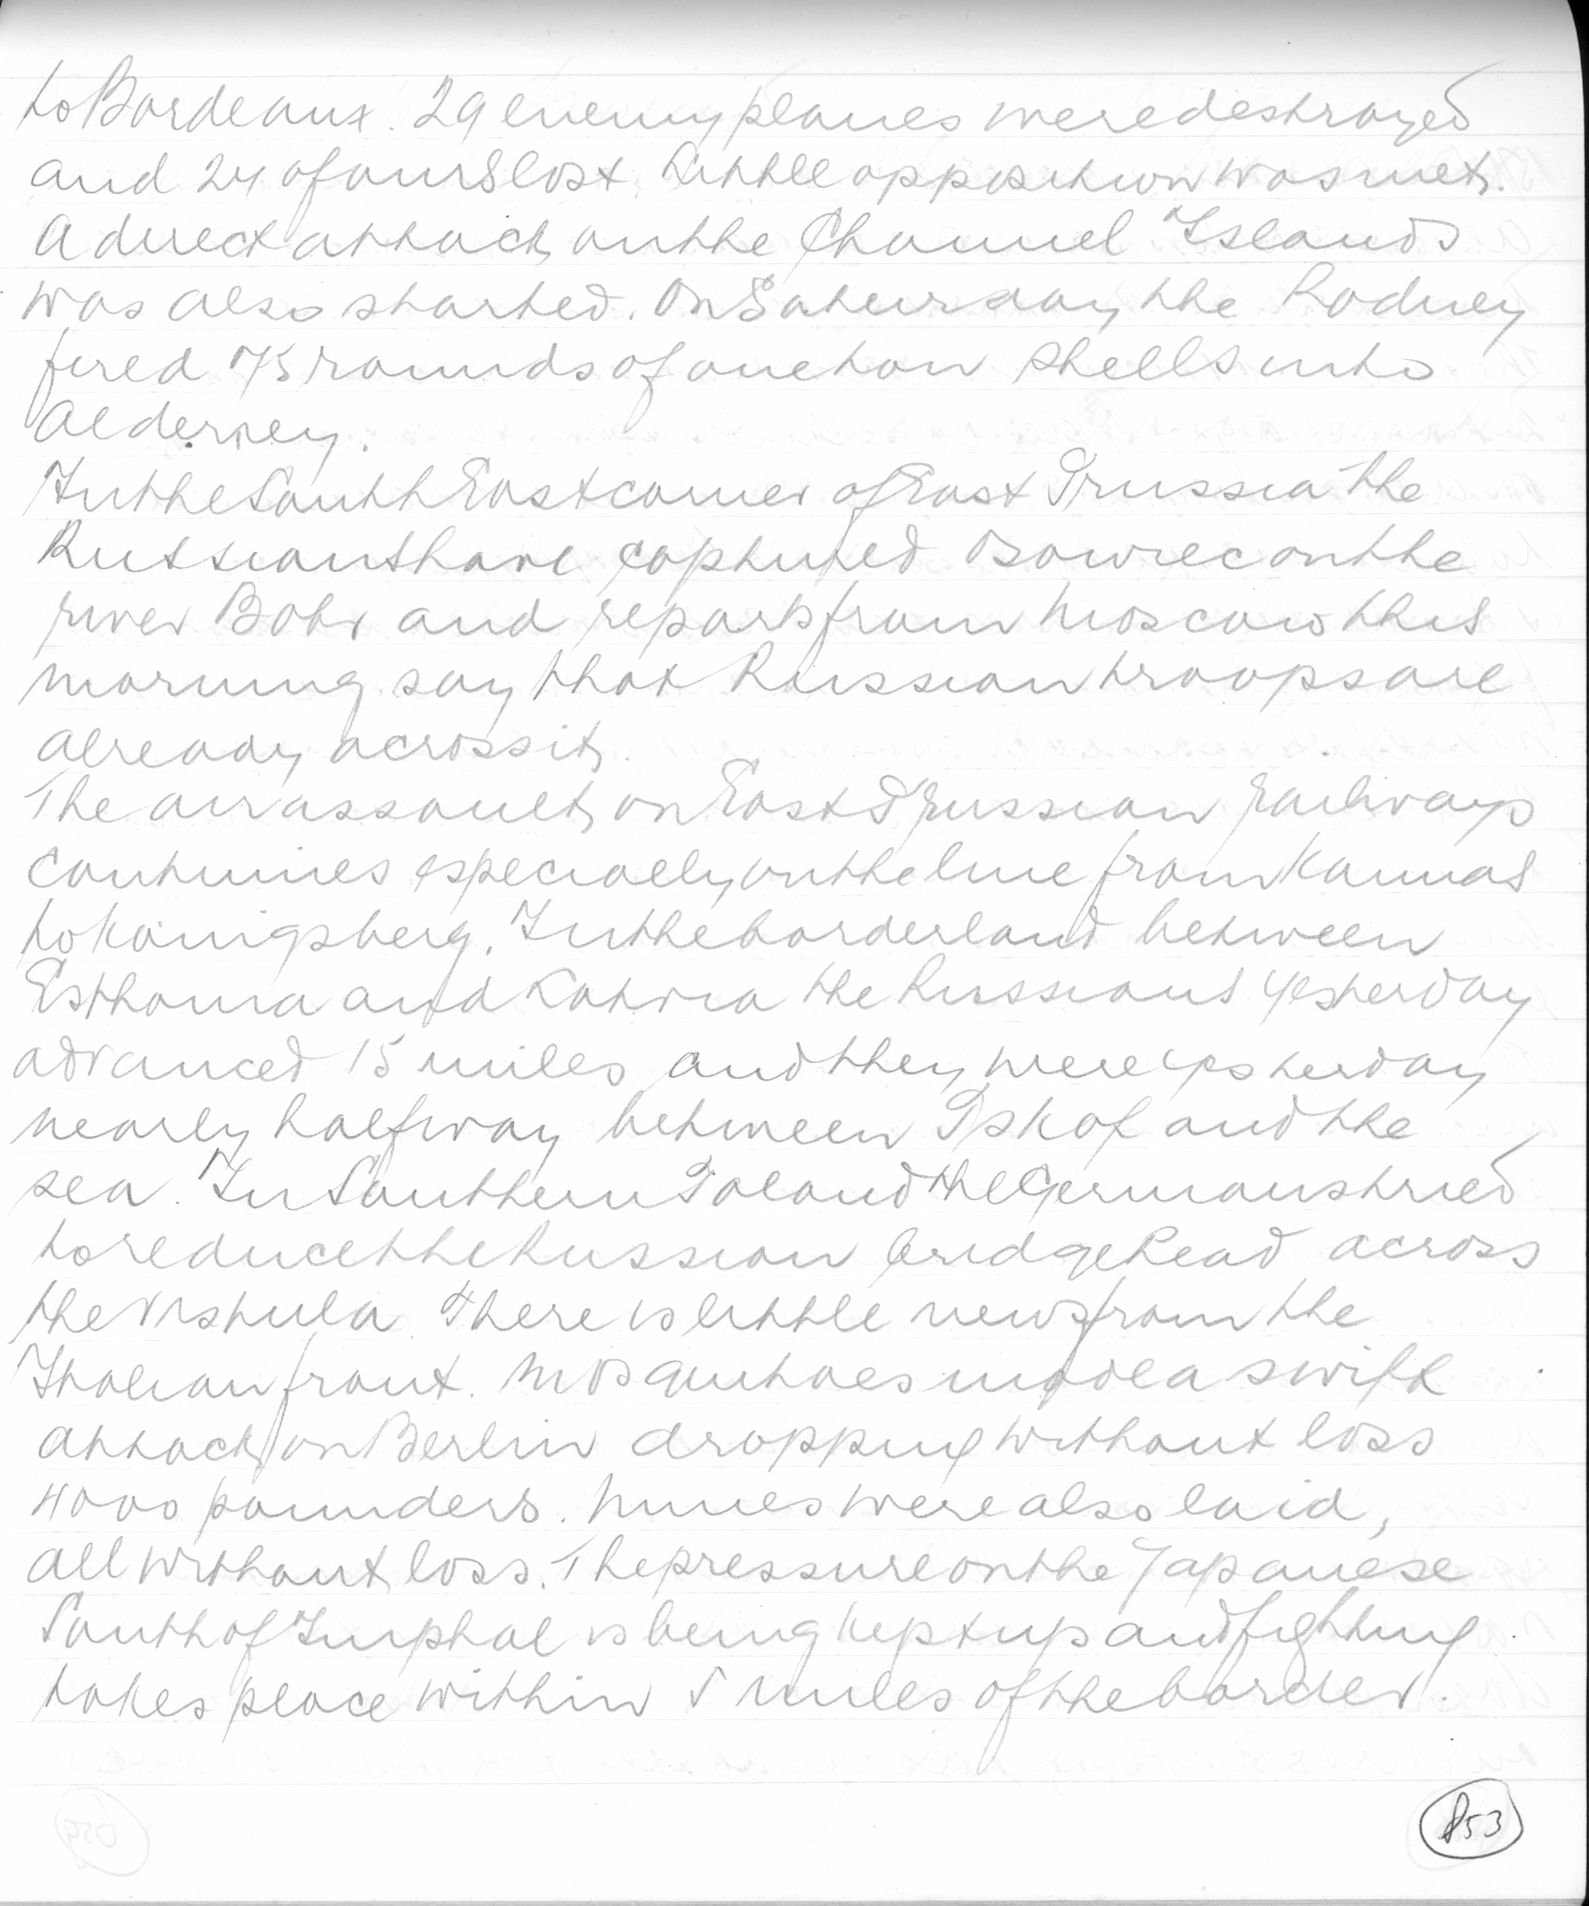 to Bordeaux. 29 enemy planes were destroyed
and 24 of ours lost. Little opposition was met.
A direct attack on the Channel Islands
was also started. On Saturday the Rodney
fired 75 rounds of one ton shells into
Alderney.
In the South East corner of East Prussia the
Russians have captured Osowiec on the
river Bobr and reports from Moscow this
morning say that Russian troops are
already across it.
The air assault on East Prussian railways
continues especially on the line from Kaunas
to Königsberg. In the borderland between
Esthonia and Latvia the Russians yesterday
advanced 15 miles and they were yesterday
nearly halfway between Pskof and the
sea. In Southern Poland the Germans tried
to reduce the Russian bridgehead across
the Vistula. There is little news from the
Italian front. Mosquitoes made a swift
attack on Berlin dropping without loss
4000 pounders. Mines were also laid,
all without loss. The pressure on the Japanese
South of Imphal is being kept up and fighting
takes place within 5 miles of the border.
853